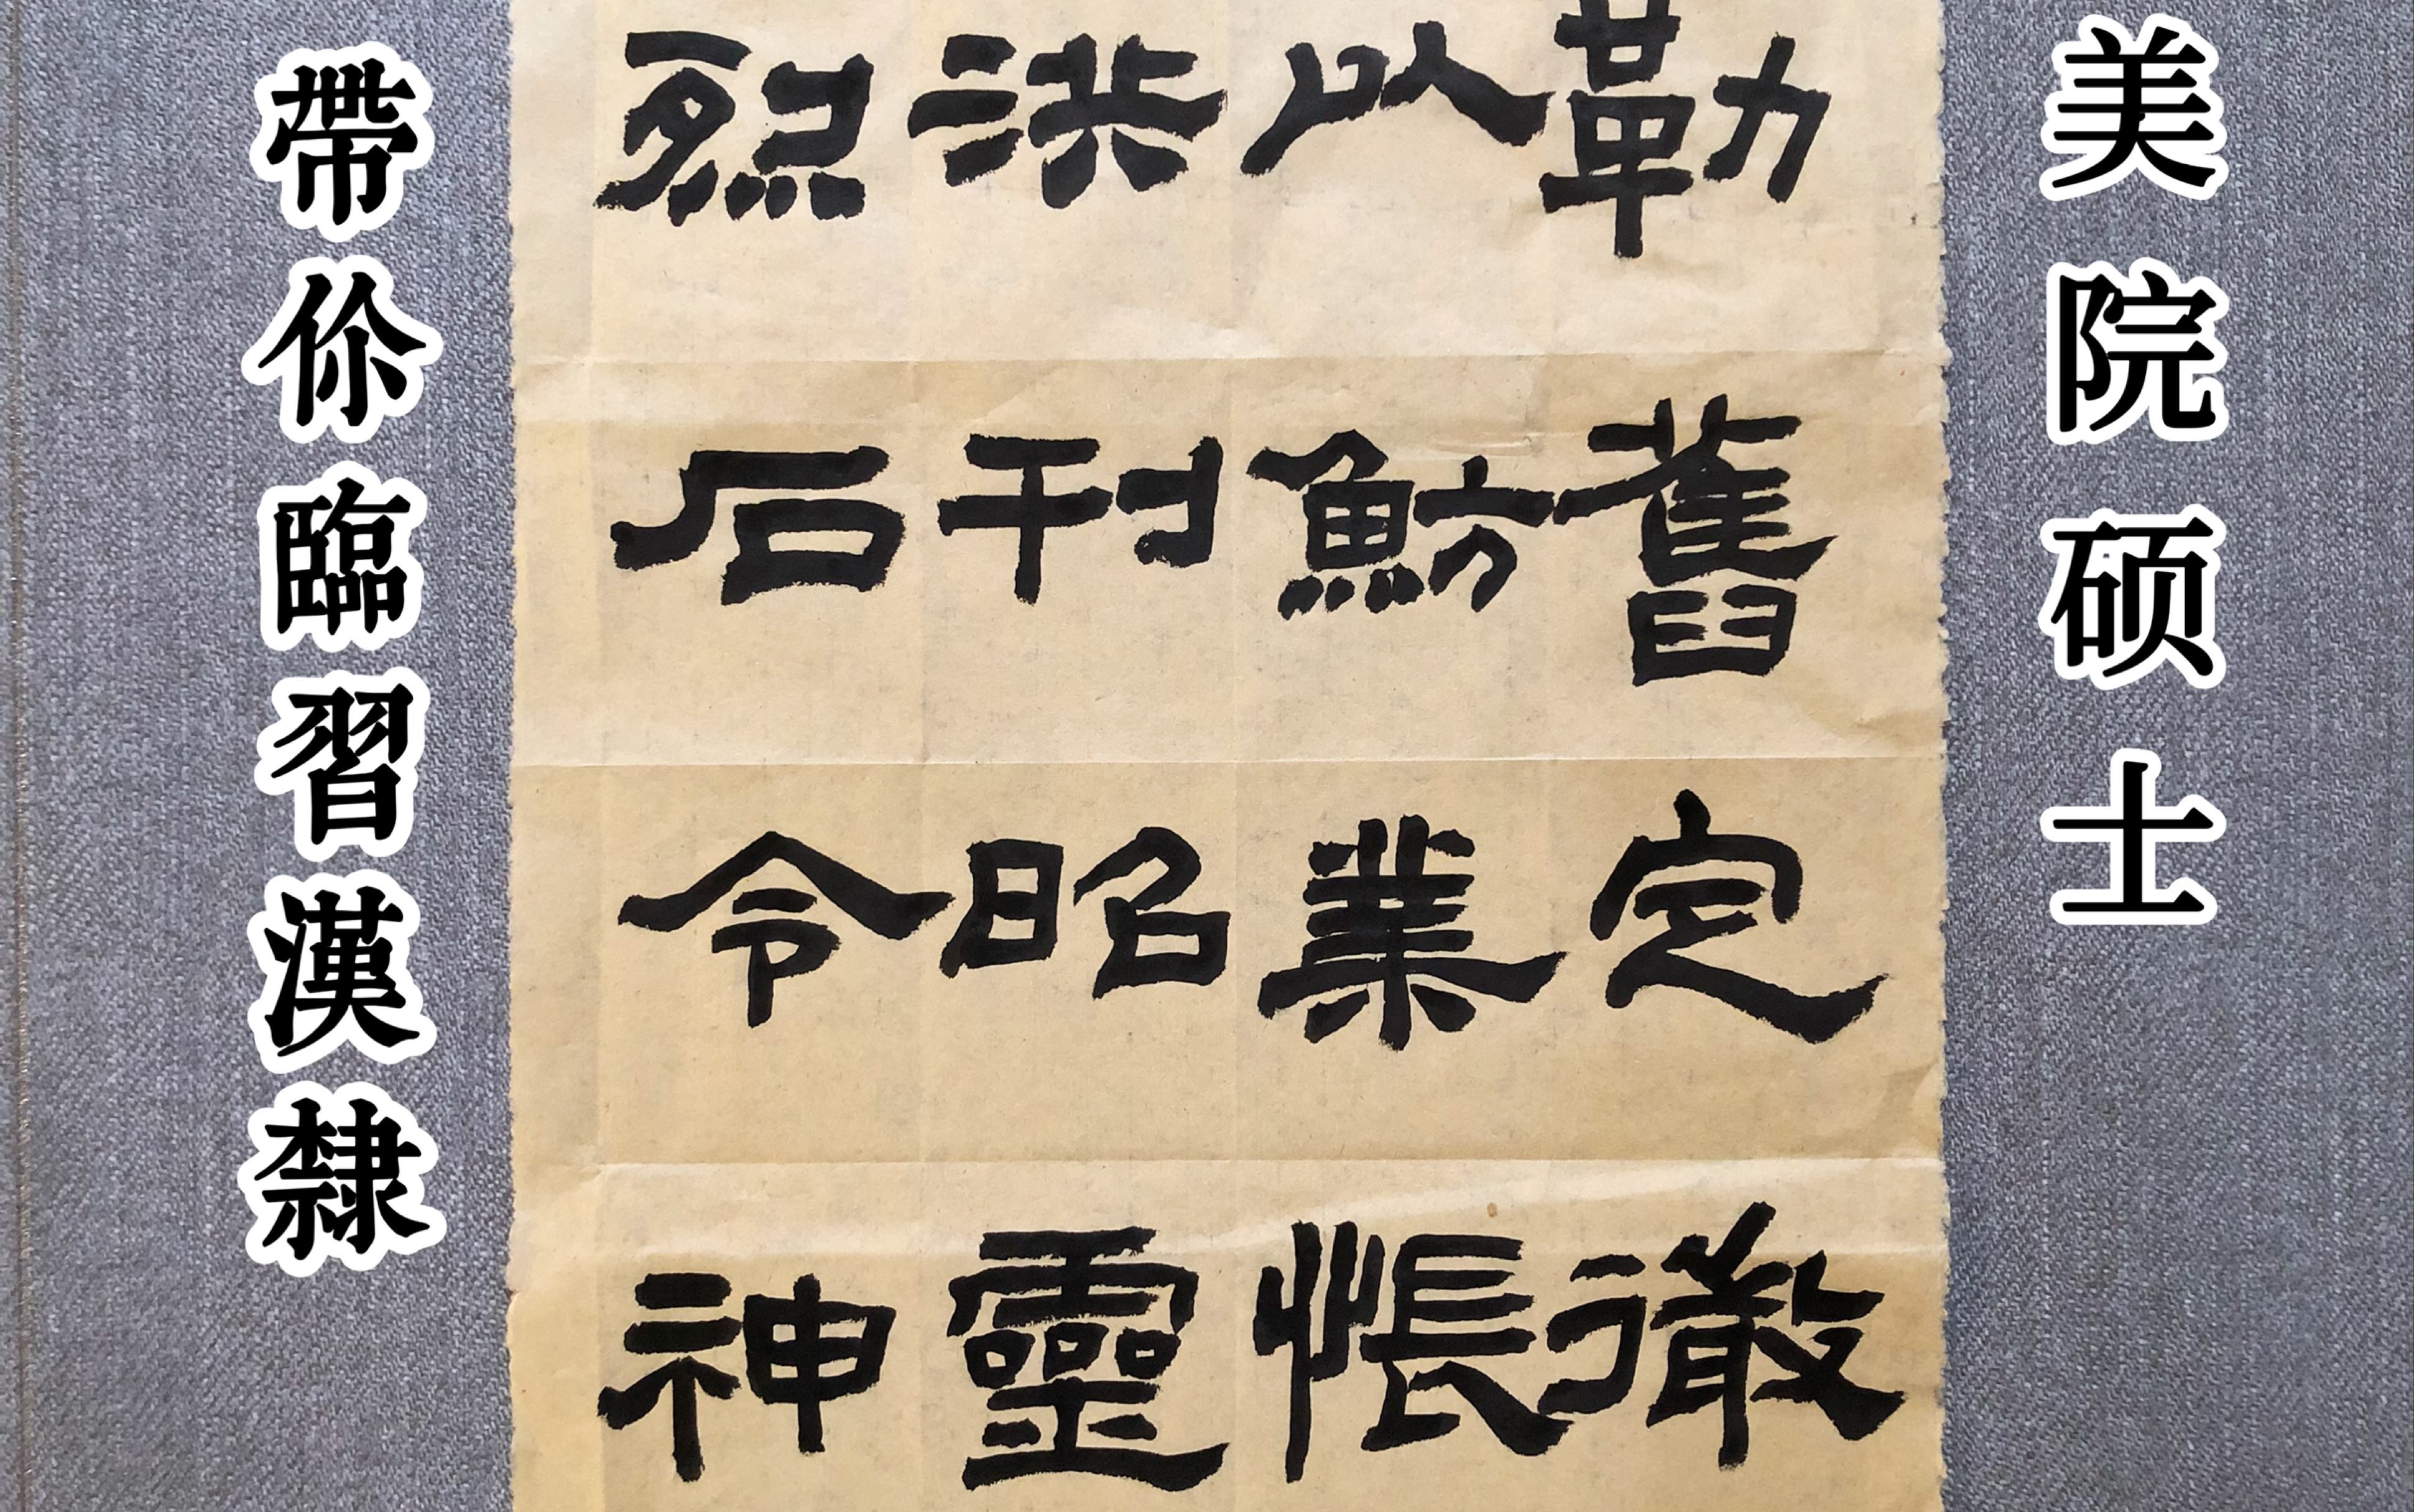 美院硕士
勒舊定徹
以魴業帳
洪刊昭靈
烈石令神
帶伱臨習漢隸